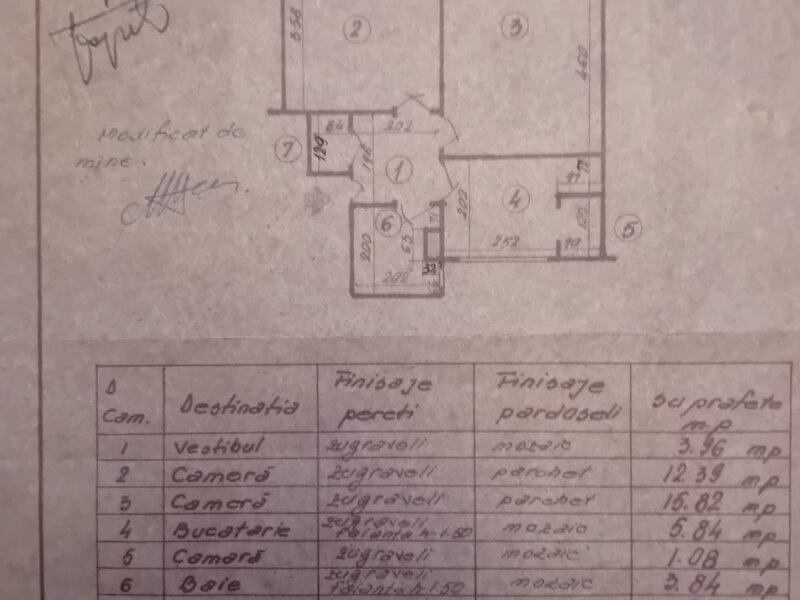 358
2
3
460
Modificat de
mine.
84
202
7
129
196
1
77
4
202
6
71
120
5
200
63
252
90
202
D
Cam.
Destinatia
Finisaje
pereti
Finisaje
pardoseli
Suprafete
m.p
1 Vestibul zugraveli mozaic 3.96 mp
2 Cameră zugraveli parchet 12.39 mp
3 Cameră zugraveli parchet 16.82 mp
4 Bucatarie zugraveli faianta h-1.50 mozaic 5.84 mp
5 Camară zugraveli mozaic 1.08 mp
6 Baie zugraveli faianta h-1.50 mozaic 3.84 mp